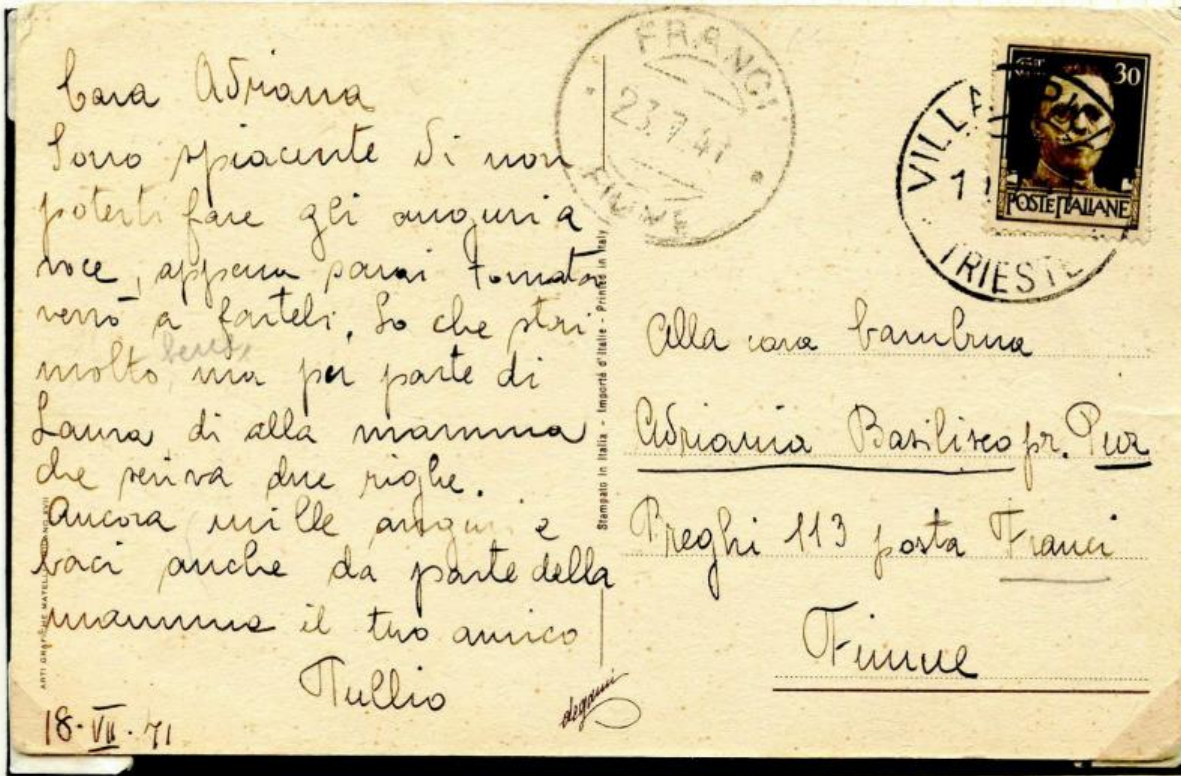 Cara Adriana
Sono spiacente di non
poterti fare gli auguri a
voce, appena sarai tornata
verrò a farteli. So che stai
molto bene, ma per parte di
Laura di alla mamma
che scriva due righe.
Ancora mille auguri e
baci anche da parte della
mamma il tuo amico
Tullio
18-VII-41
ARTI GRAFICHE
Stampato in Italia - Importé d'Italie - Printed in Italy
degami
FRANCI
23.7.41
FIUME
VILLA
TRIESTE
30
POSTE ITALIANE
Alla cara bambina
Adriana Basilisco pr.
Breghi 113 posta Franci
Fiume